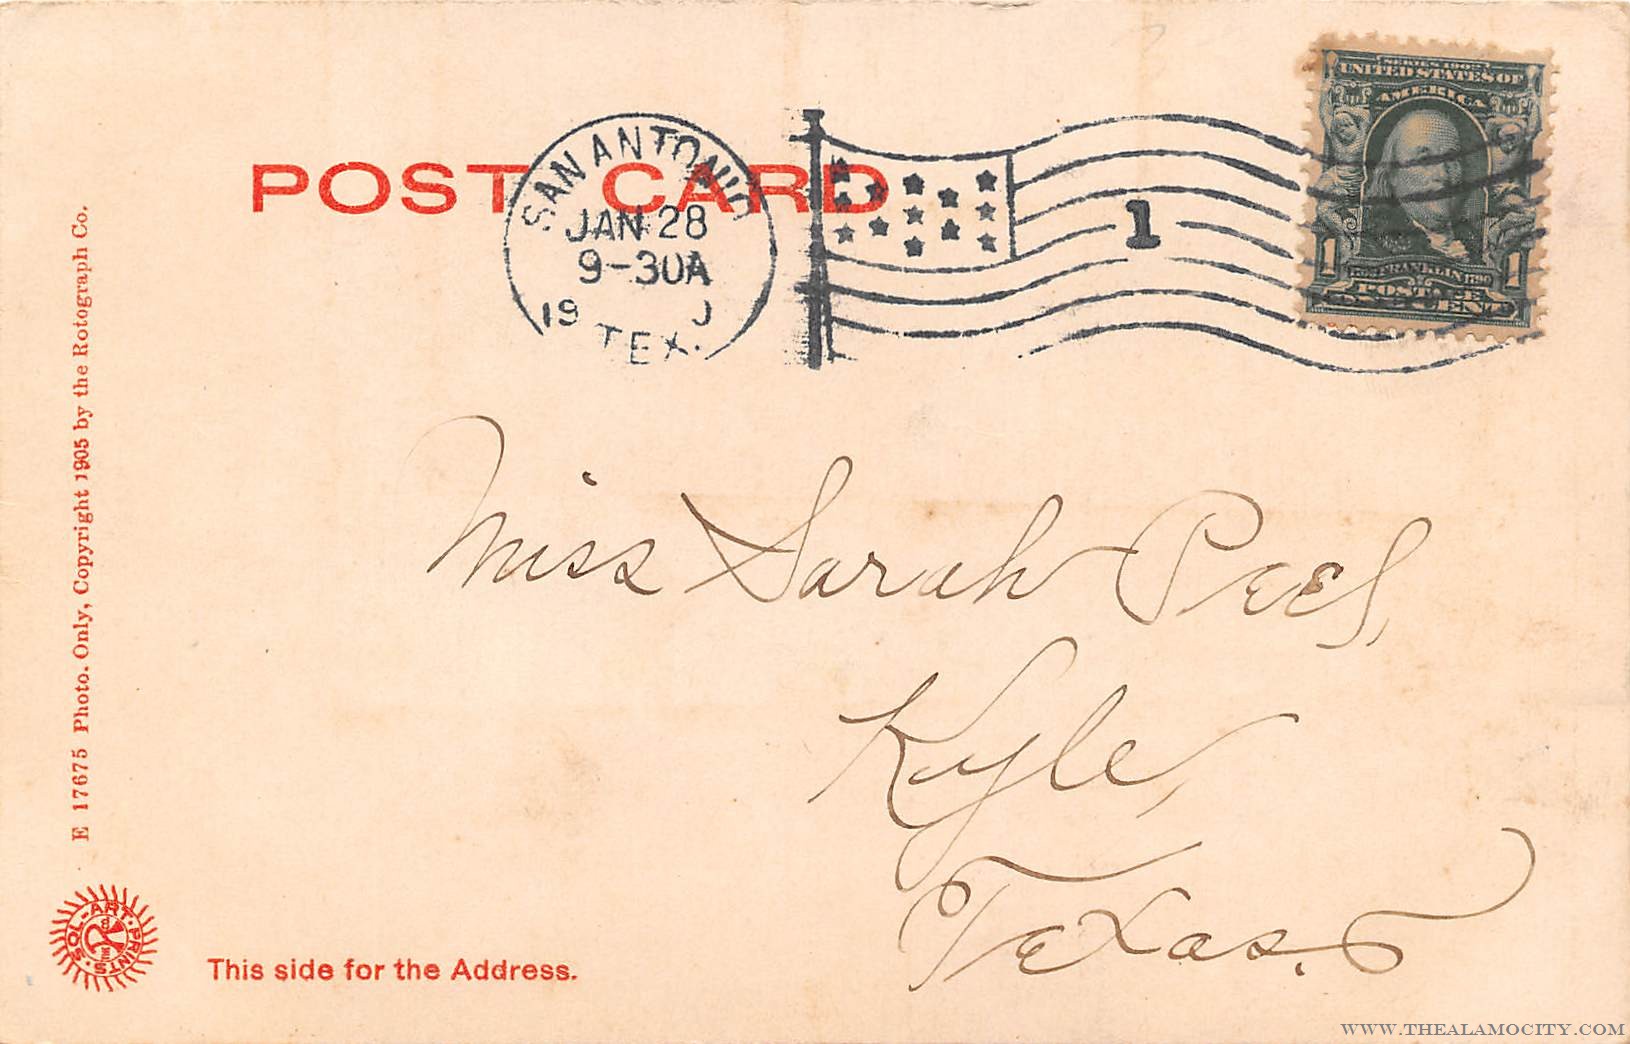 SERIES 1902
UNITED STATES OF
AMERICA
1 FRANKLIN 1790 1
POSTAGE
POST CARD
SAN ANTONIO
JAN 28
9-30A
19
TEX.
1
Miss Sarah Peel,
Kyle,
Texas.
E 17675 Photo. Only, Copyright 1905 by the Rotograph Co.
SOL-ART PRINTS
This side for the Address.
WWW.THEALAMOCITY.COM